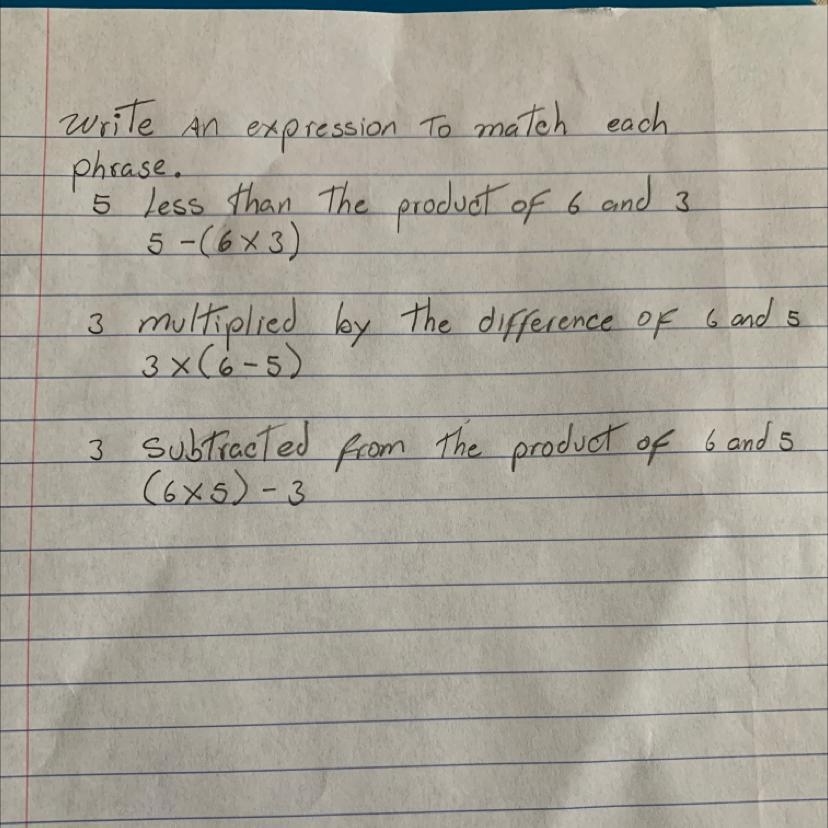 Write An expression To match each
phrase.
5 Less than The product of 6 and 3
5 - (6 × 3)
3 multiplied by The difference of 6 and 5
3 × (6 - 5)
3 Subtracted from The product of 6 and 5
(6 × 5) - 3